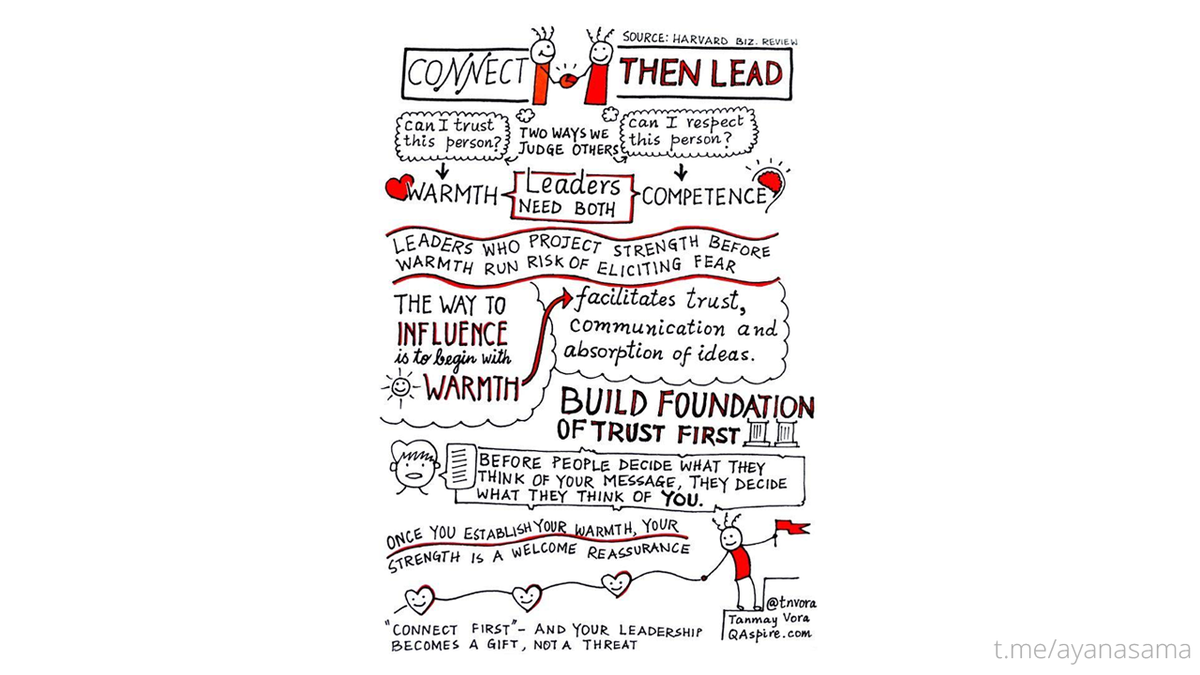 SOURCE: HARVARD BIZ. REVIEW
CONNECT THEN LEAD
can I trust
this person?
TWO WAYS WE
JUDGE OTHERS
can I respect
this person?
WARMTH
Leaders
NEED BOTH
COMPETENCE
LEADERS WHO PROJECT STRENGTH BEFORE
WARMTH RUN RISK OF ELICITING FEAR
THE WAY TO
INFLUENCE
is to begin with
WARMTH
facilitates trust,
communication and
absorption of ideas.
BUILD FOUNDATION
OF TRUST FIRST
BEFORE PEOPLE DECIDE WHAT THEY
THINK OF YOUR MESSAGE, THEY DECIDE
WHAT THEY THINK OF YOU.
ONCE YOU ESTABLISH YOUR WARMTH, YOUR
STRENGTH IS A WELCOME REASSURANCE
@tnvora
Tanmay Vora
QAspire.com
"CONNECT FIRST" - AND YOUR LEADERSHIP
BECOMES A GIFT, NOT A THREAT
t.me/ayanasama